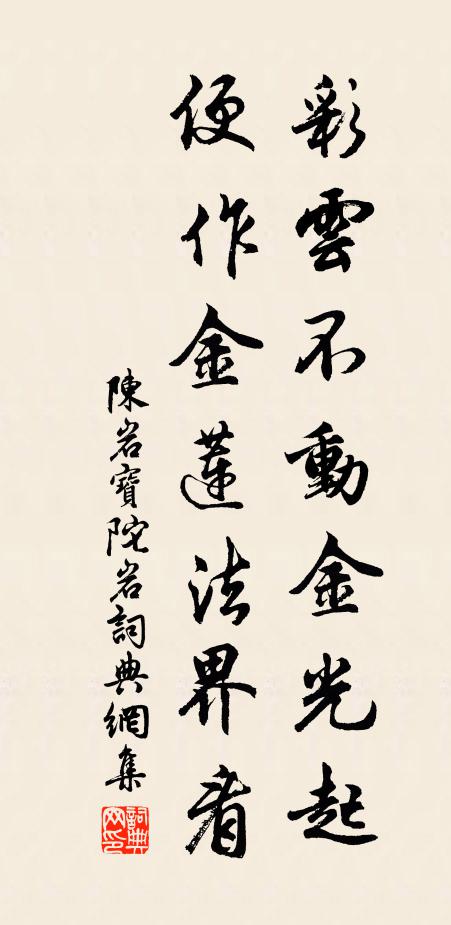 彩雲不動金光起
便作金蓮法界看
陳岩寶陀岩詞典網集
詞典網印